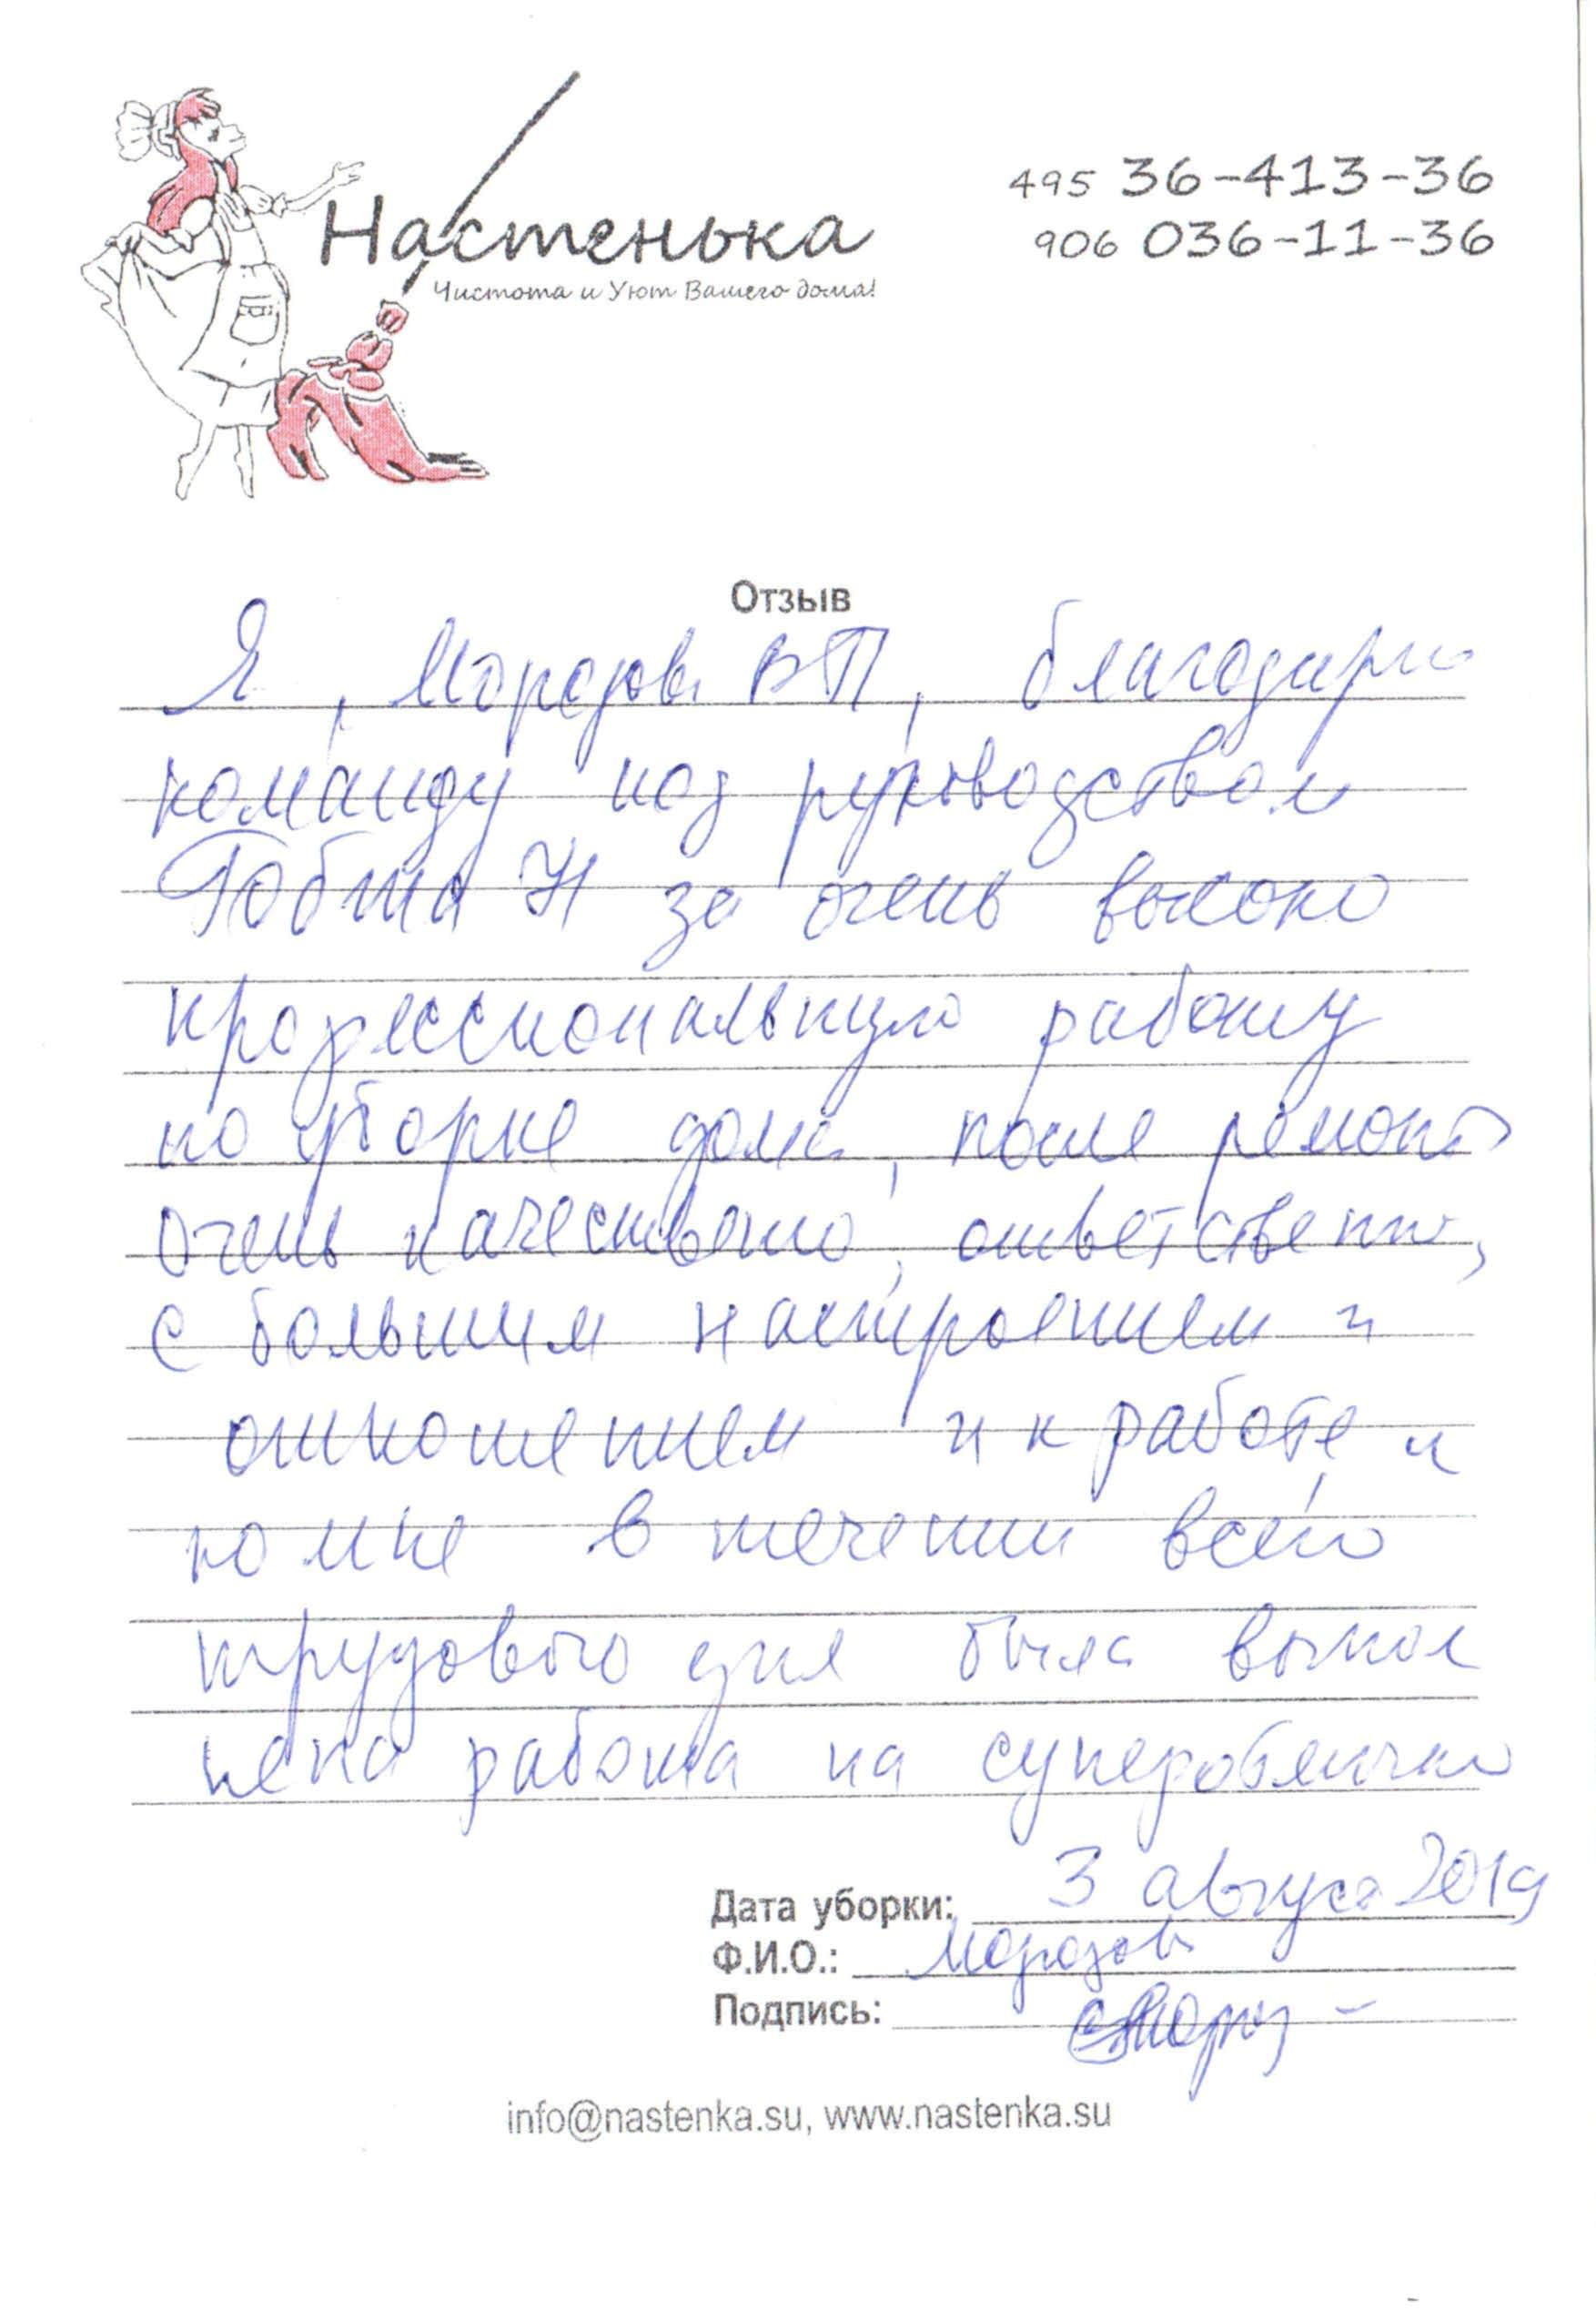 Настенька
Чистота и Уют Вашего дома!
495 36-413-36
906 036-11-36
Отзыв
Я, Морозов ВП, благодарю
команду под руководством
Н за очень высоко
профессиональную работу
по уборке дома, после ремонта
очень качественно, ответственно,
с большим настроением и
отношением и к работе и
ко мне в течении всего
трудового дня была выпол
нена работа на
Дата уборки: 3 августа 2019
Ф.И.О.: Морозов
Подпись:
info@nastenka.su, www.nastenka.su